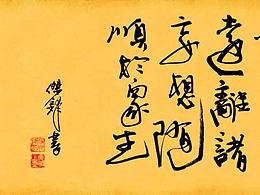 遠離諸
妄想隨
順於眾生
傑鋒書